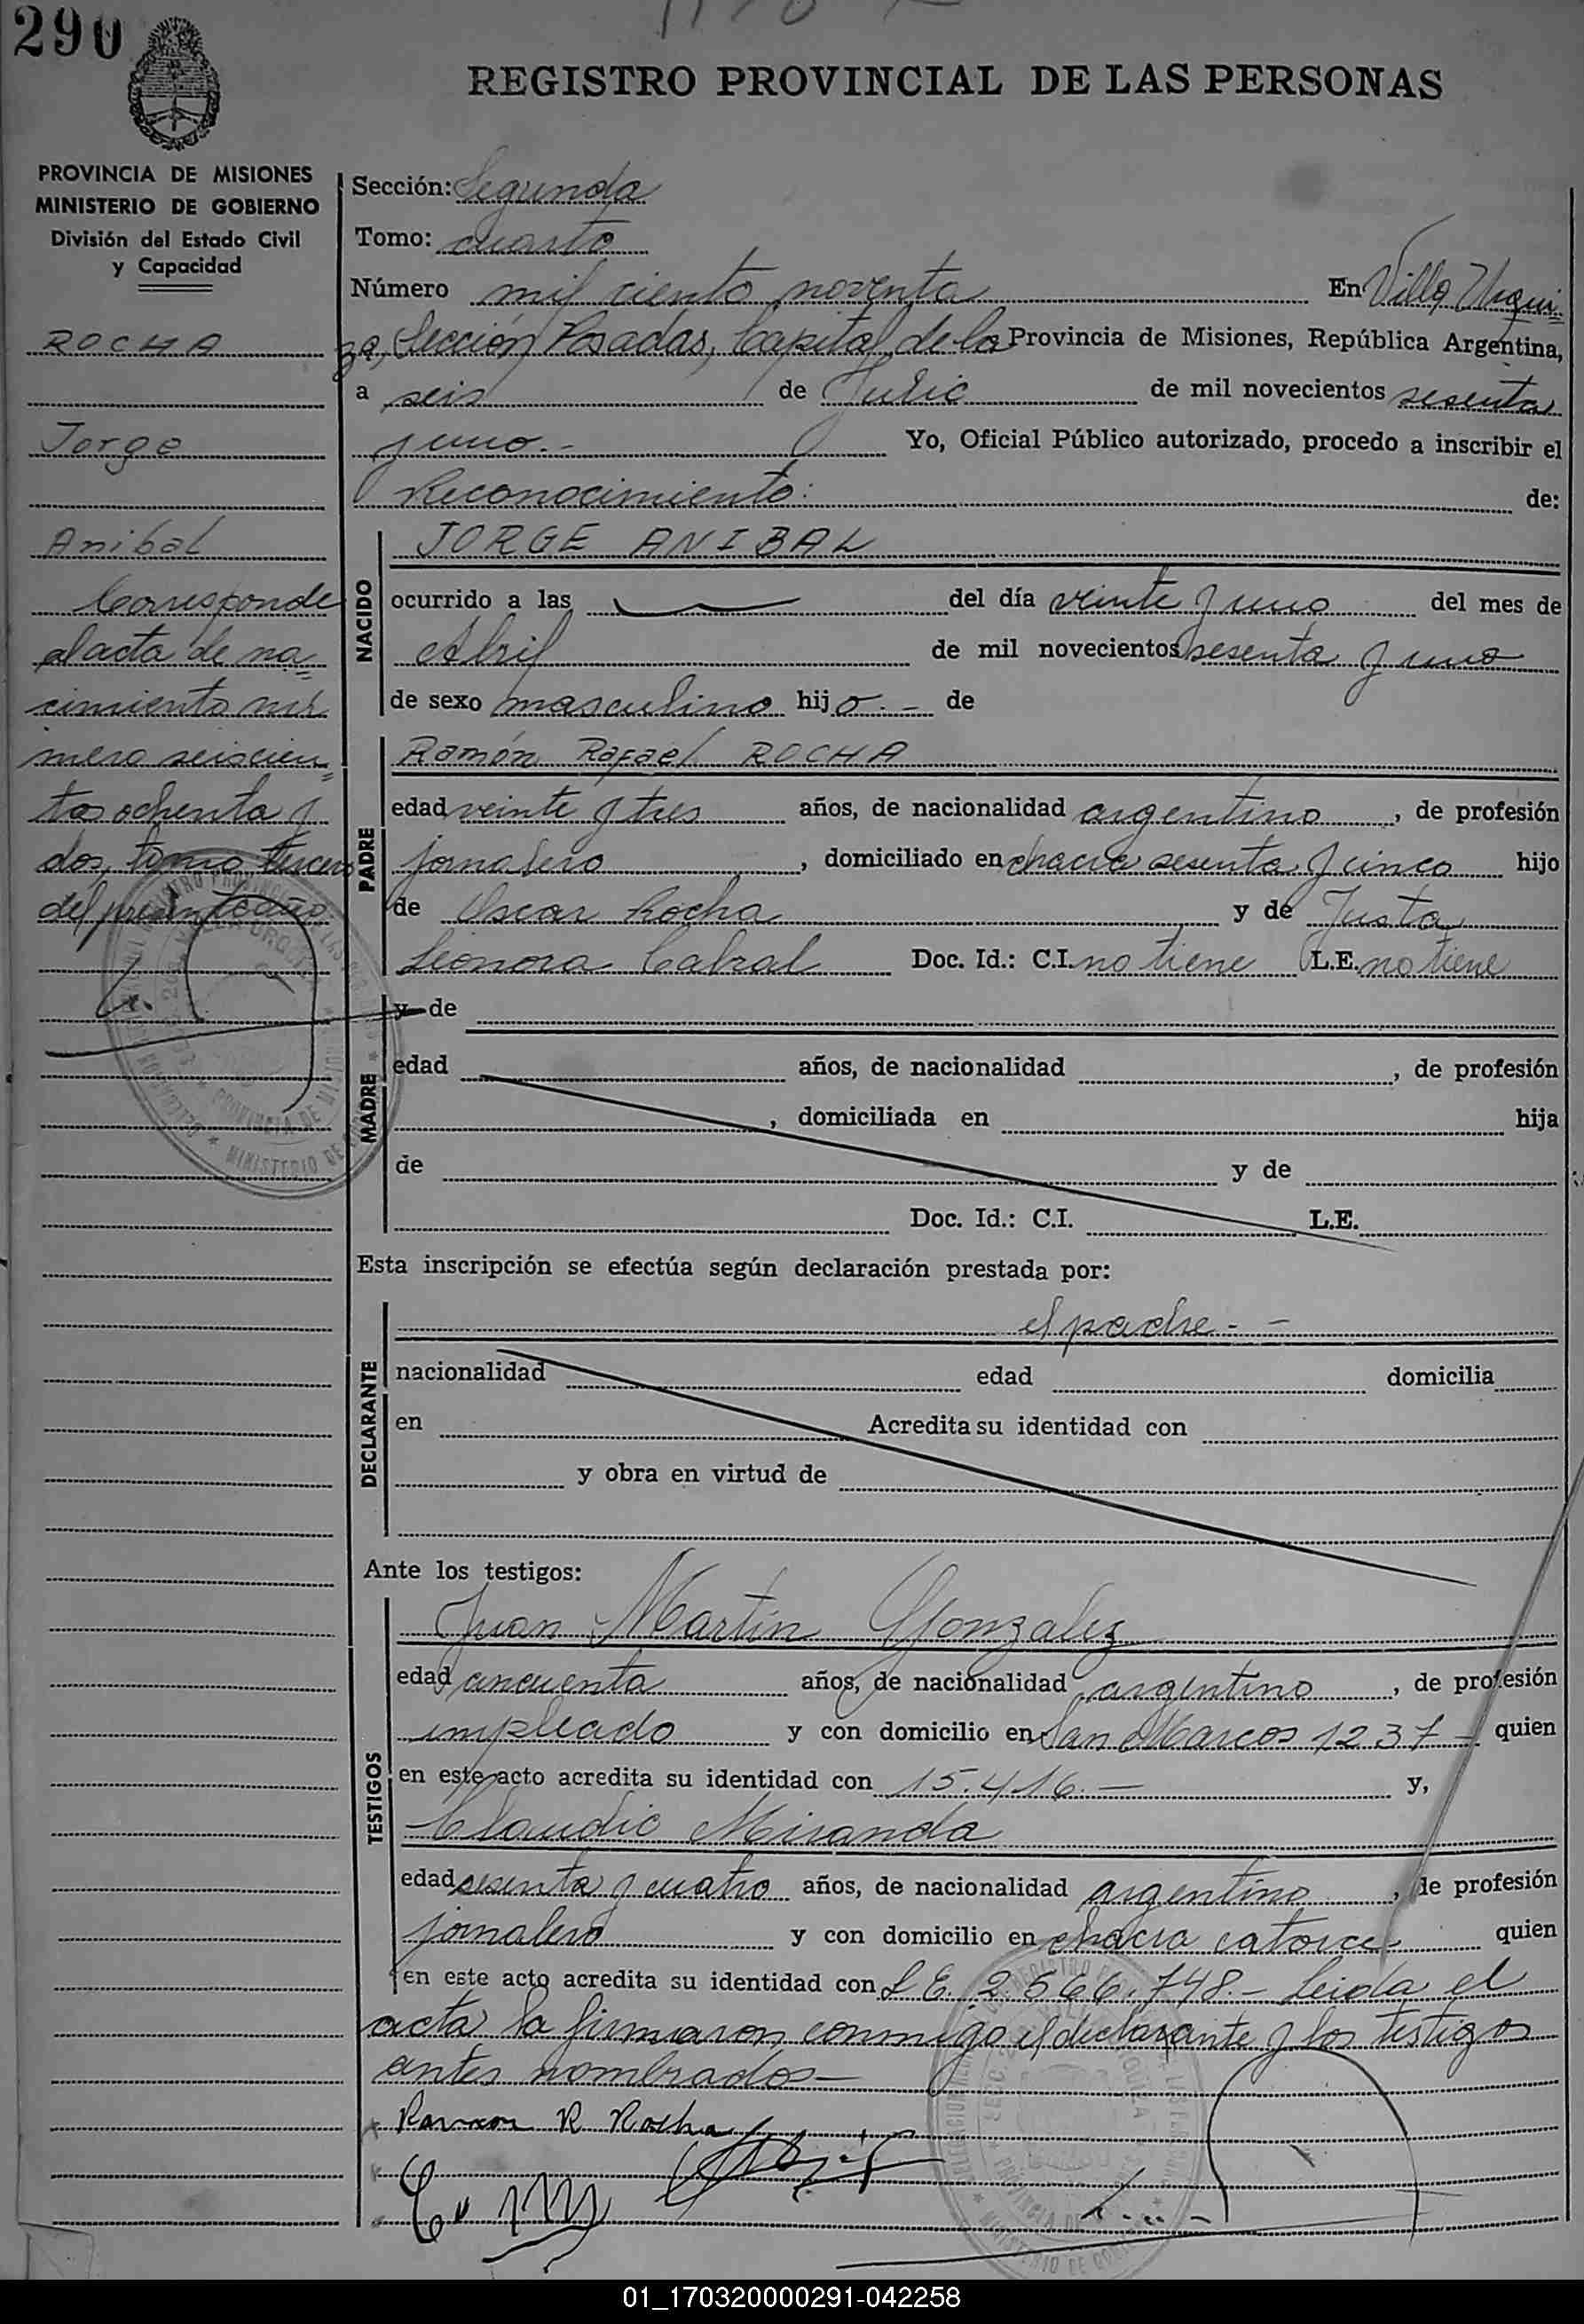 290
REGISTRO PROVINCIAL DE LAS PERSONAS
PROVINCIA DE MISIONES
MINISTERIO DE GOBIERNO
División del Estado Civil
y Capacidad
ROCHA
Jorge
Anibal
Corresponde
al acta de na=
cimiento nú
mero seiscien=
tos ochenta y
dos, tomo tercero
del presente año
Sección: Segunda
Tomo: cuarto
Número mil ciento noventa En Villa Urqui=
za, Sección Posadas, Capital de la Provincia de Misiones, República Argentina,
a seis de Julio de mil novecientos sesenta
y uno.- Yo, Oficial Público autorizado, procedo a inscribir el
Reconocimiento: de:
NACIDO
JORGE ANIBAL
ocurrido a las — del día veinte y uno del mes de
Abril de mil novecientos sesenta y uno
de sexo masculino hijo.- de
PADRE
Ramón Rafael ROCHA
edad veinte y tres años, de nacionalidad argentino, de profesión
jornalero, domiciliado en chacra sesenta y cinco hijo
de Oscar Rocha y de Justa
Leonora Cabral Doc. Id.: C.I. no tiene L.E. no tiene
MADRE
y de
edad años, de nacionalidad , de profesión
, domiciliada en hija
de y de
Doc. Id.: C.I. L.E.
Esta inscripción se efectúa según declaración prestada por:
DECLARANTE
el padre.- -
nacionalidad edad domicilia
en Acredita su identidad con
y obra en virtud de
Ante los testigos:
TESTIGOS
Juan Martín Gonzalez
edad cincuenta años, de nacionalidad argentino, de profesión
empleado y con domicilio en San Marcos 1237 - quien
en este acto acredita su identidad con 15.416.- y,
Claudio Miranda
edad sesenta y cuatro años, de nacionalidad argentino, de profesión
jornalero y con domicilio en chacra catorce quien
en este acto acredita su identidad con L E. 2.566.748.- Leida el
acta la firmaron conmigo el declarante y los testigos
antes nombrados-
Ramon R Rocha
01_170320000291-042258